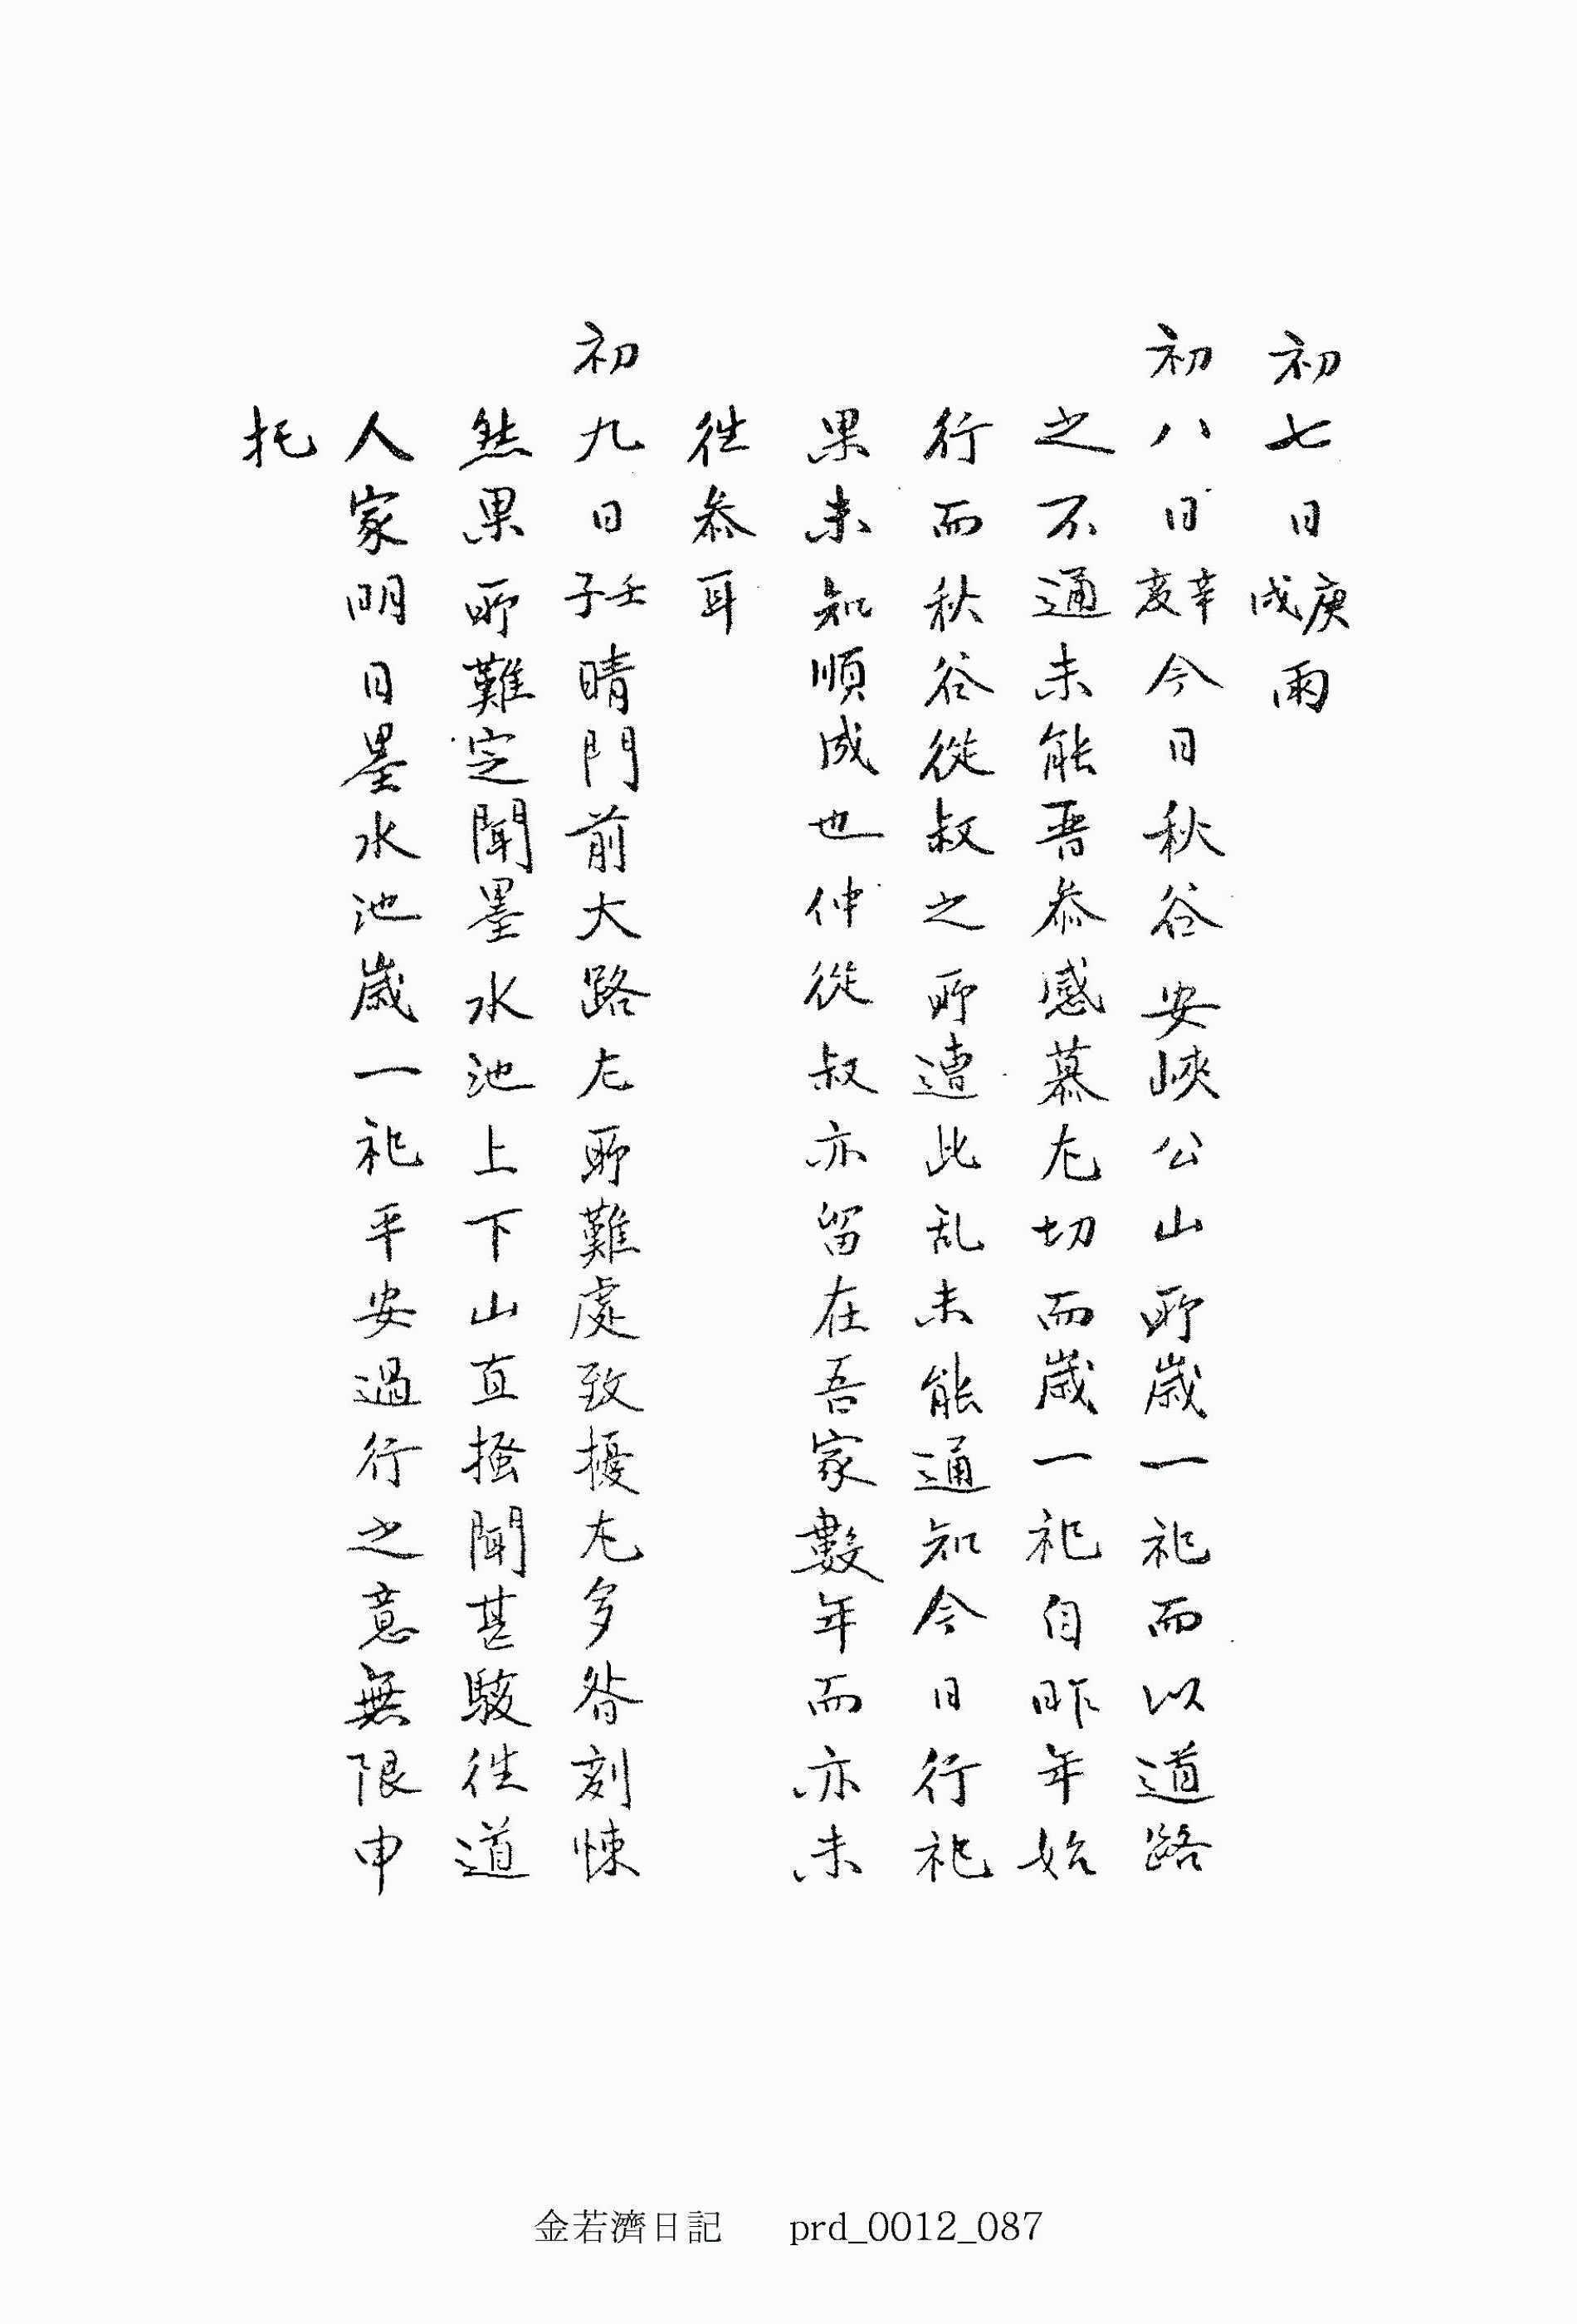 初七日庚戌雨
初八日辛亥今日秋谷安峽公山所歲一祀而以道路
之不通未能晉叅感慕尤切而歲一祀自昨年始
行而秋谷從叔之所遭此乱未能通知今日行祀
果未知順成也仲從叔亦留在吾家數年而亦未
徃叅耳
初九日壬子晴門前大路尤所難處致擾尤多咎刻悚
然果所難定聞墨水池上下山直掻聞甚駭徃道
人家明日墨水池歲一祀平安過行之意無限申
托
金若濟日記 prd_0012_087